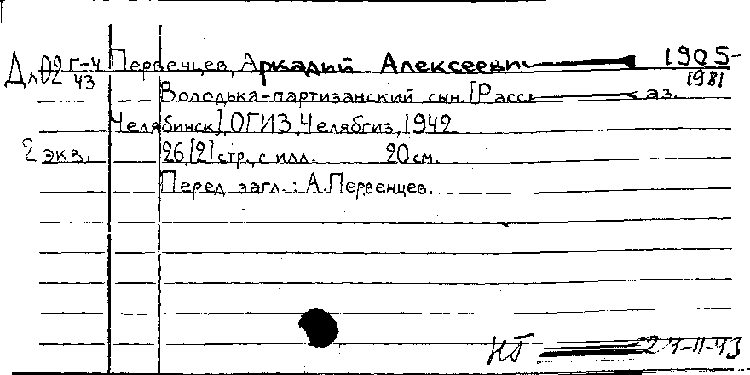 Дл02 Г-4 Первенцев, Аркадий Алексеевич 1905-
43 1981
Володька-партизанский сын. [Рассказ.
Челябинск], ОГИЗ, Челябгиз, 1942
2 экз. 26[2] стр., с илл. 20 см.
Перед загл.: А. Первенцев.
24-II-43